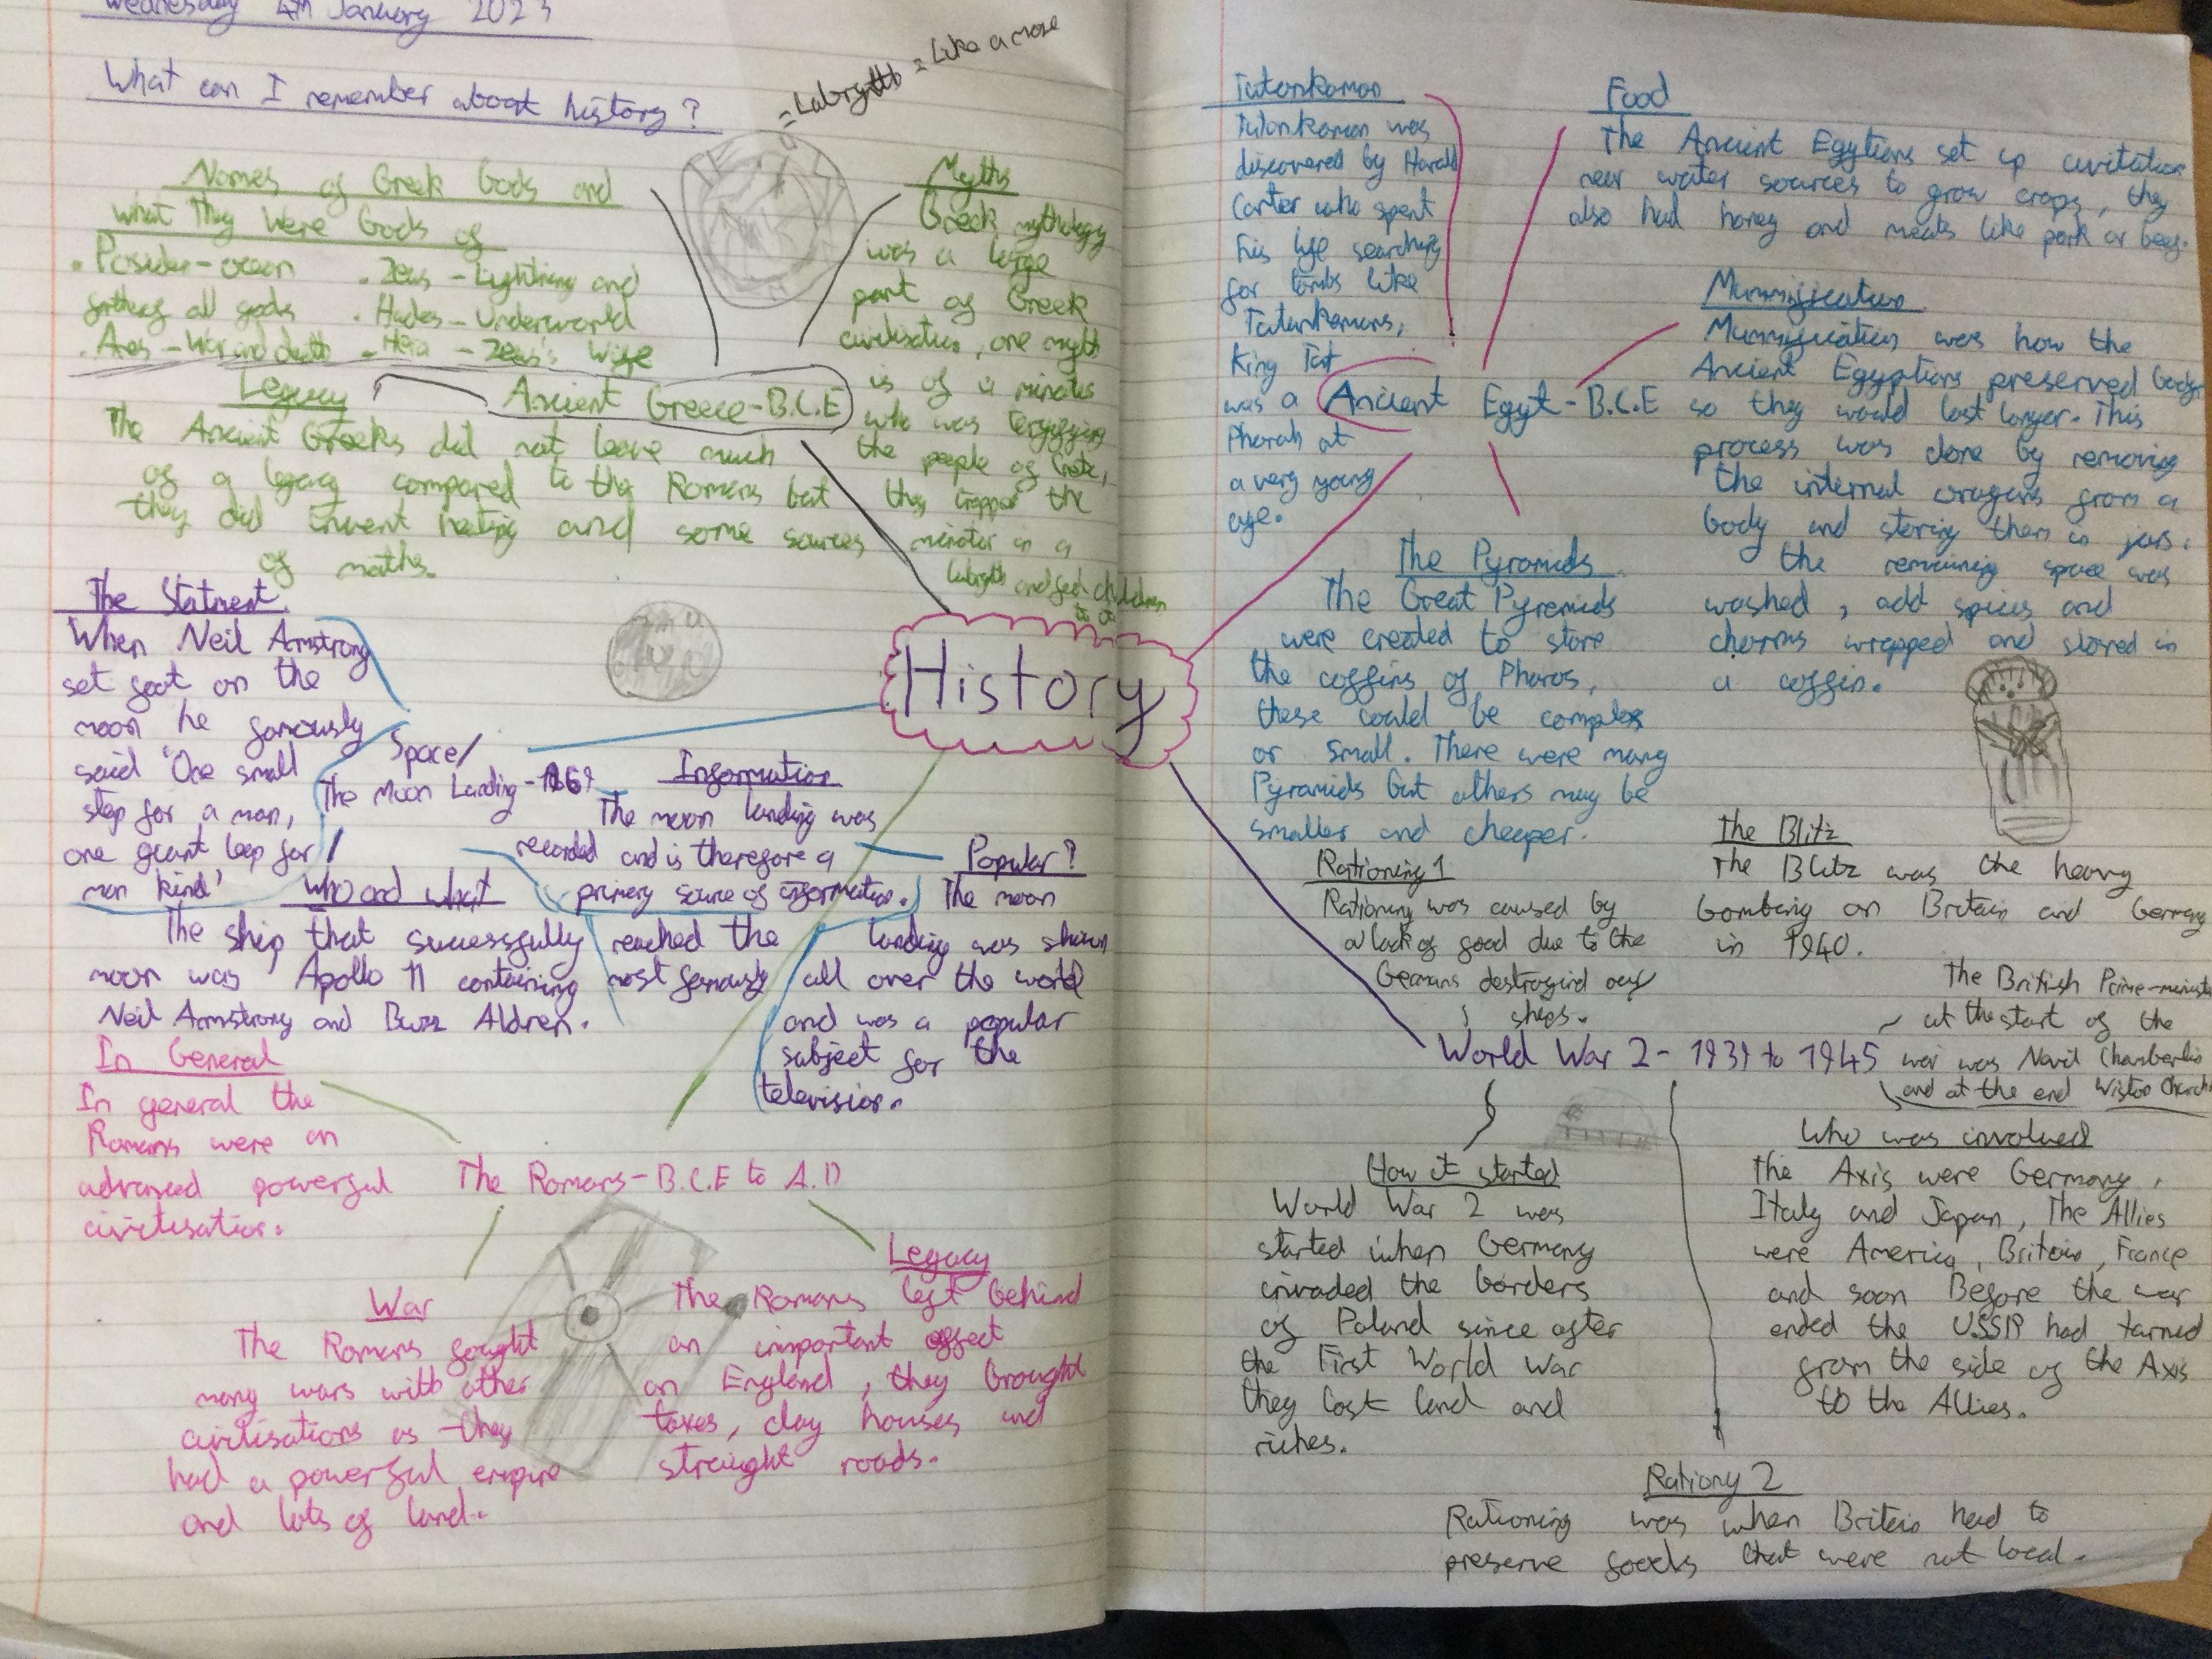 Wednesday 4th January 2023
What can I remember about history?
= Labrynth = Like a maze
Names of Greek Gods and
what They Were Gods of
• Posiden - ocean
• Zeus - Lightning and
father of all gods
• Hades - Underworld
• Ares - War and death
• Hera - Zeus's wife
Myths
Greek mythology
was a large
part of Greek
civilisation, one myth
is of a minotus
who was terrifying
the people of Crete,
they trapped the
minotor in a
labryth and fed children
to it
Ancient Greece - B.C.E
Legacy
The Ancient Greeks did not leave much
of a legacy compared to the Romans but
they did invent heating and some sources
of maths.
History
The Statment
When Neil Armstrong
set foot on the
moon he famously
said 'One small
step for a man,
one giant leep for
man kind'
Space/
The Moon Landing - 1969
Information
The moon landing was
recorded and is therefore a
primary source of information.
Popular?
The moon
landing was shown
all over the world
and was a popular
subject for the
television.
Who and what
The ship that successfully reached the
moon was Apollo 11 containing most famously
Neil Armstrong and Buzz Aldren.
In General
In general the
Romans were an
advanced powerful
civilisation.
The Romans - B.C.E to A.D
War
The Romans fought
many wars with other
civilisations as they
had a powerful empire
and lots of land.
Legacy
The Romans left behind
an important affect
on England, they brought
taxes, clay houses and
straight roads.
Tutonkamon
Tutonkamon was
discovered by Harold
Carter who spent
his life searching
for tombs like
Tutonkamons,
King Tut
was a
Pharoh at
a very young
age.
Food
The Ancient Egytians set up civitation
near water sources to grow crops, they
also had honey and meats like pork or beef.
Ancient Egyt - B.C.E
Mummification
Mummification was how the
Ancient Egyptians preserved bodys
so they would last longer. This
process was done by removing
the internal oragens from a
body and storing them in jars.
the remaining space was
washed, add spices and
charms wrapped and stored in
a coffin.
The Pyramids
The Great Pyramids
were created to store
the coffins of Pharos,
these could be complex
or small. There were many
Pyramids but others may be
smaller and cheaper.
Rationing 1
Rationing was caused by
a lack of food due to the
Germans destroyind our
ships.
The Blitz
The Blitz was the heavy
bombing on Britain and Germany
in 1940.
The British Prime-minister
at the start of the
war was Navil Chamberlin
and at the end Wistoo Church
World War 2 - 1939 to 1945
How it started
World War 2 was
started when Germany
invaded the borders
of Poland since after
the First World War
they lost land and
riches.
Who was involved
The Axis were Germany,
Italy and Japan, The Allies
were America, Britain, France
and soon Before the war
ended the USSR had turned
from the side of the Axis
to the Allies.
Rationy 2
Rationing was when Britain had to
preserve foods that were not local.